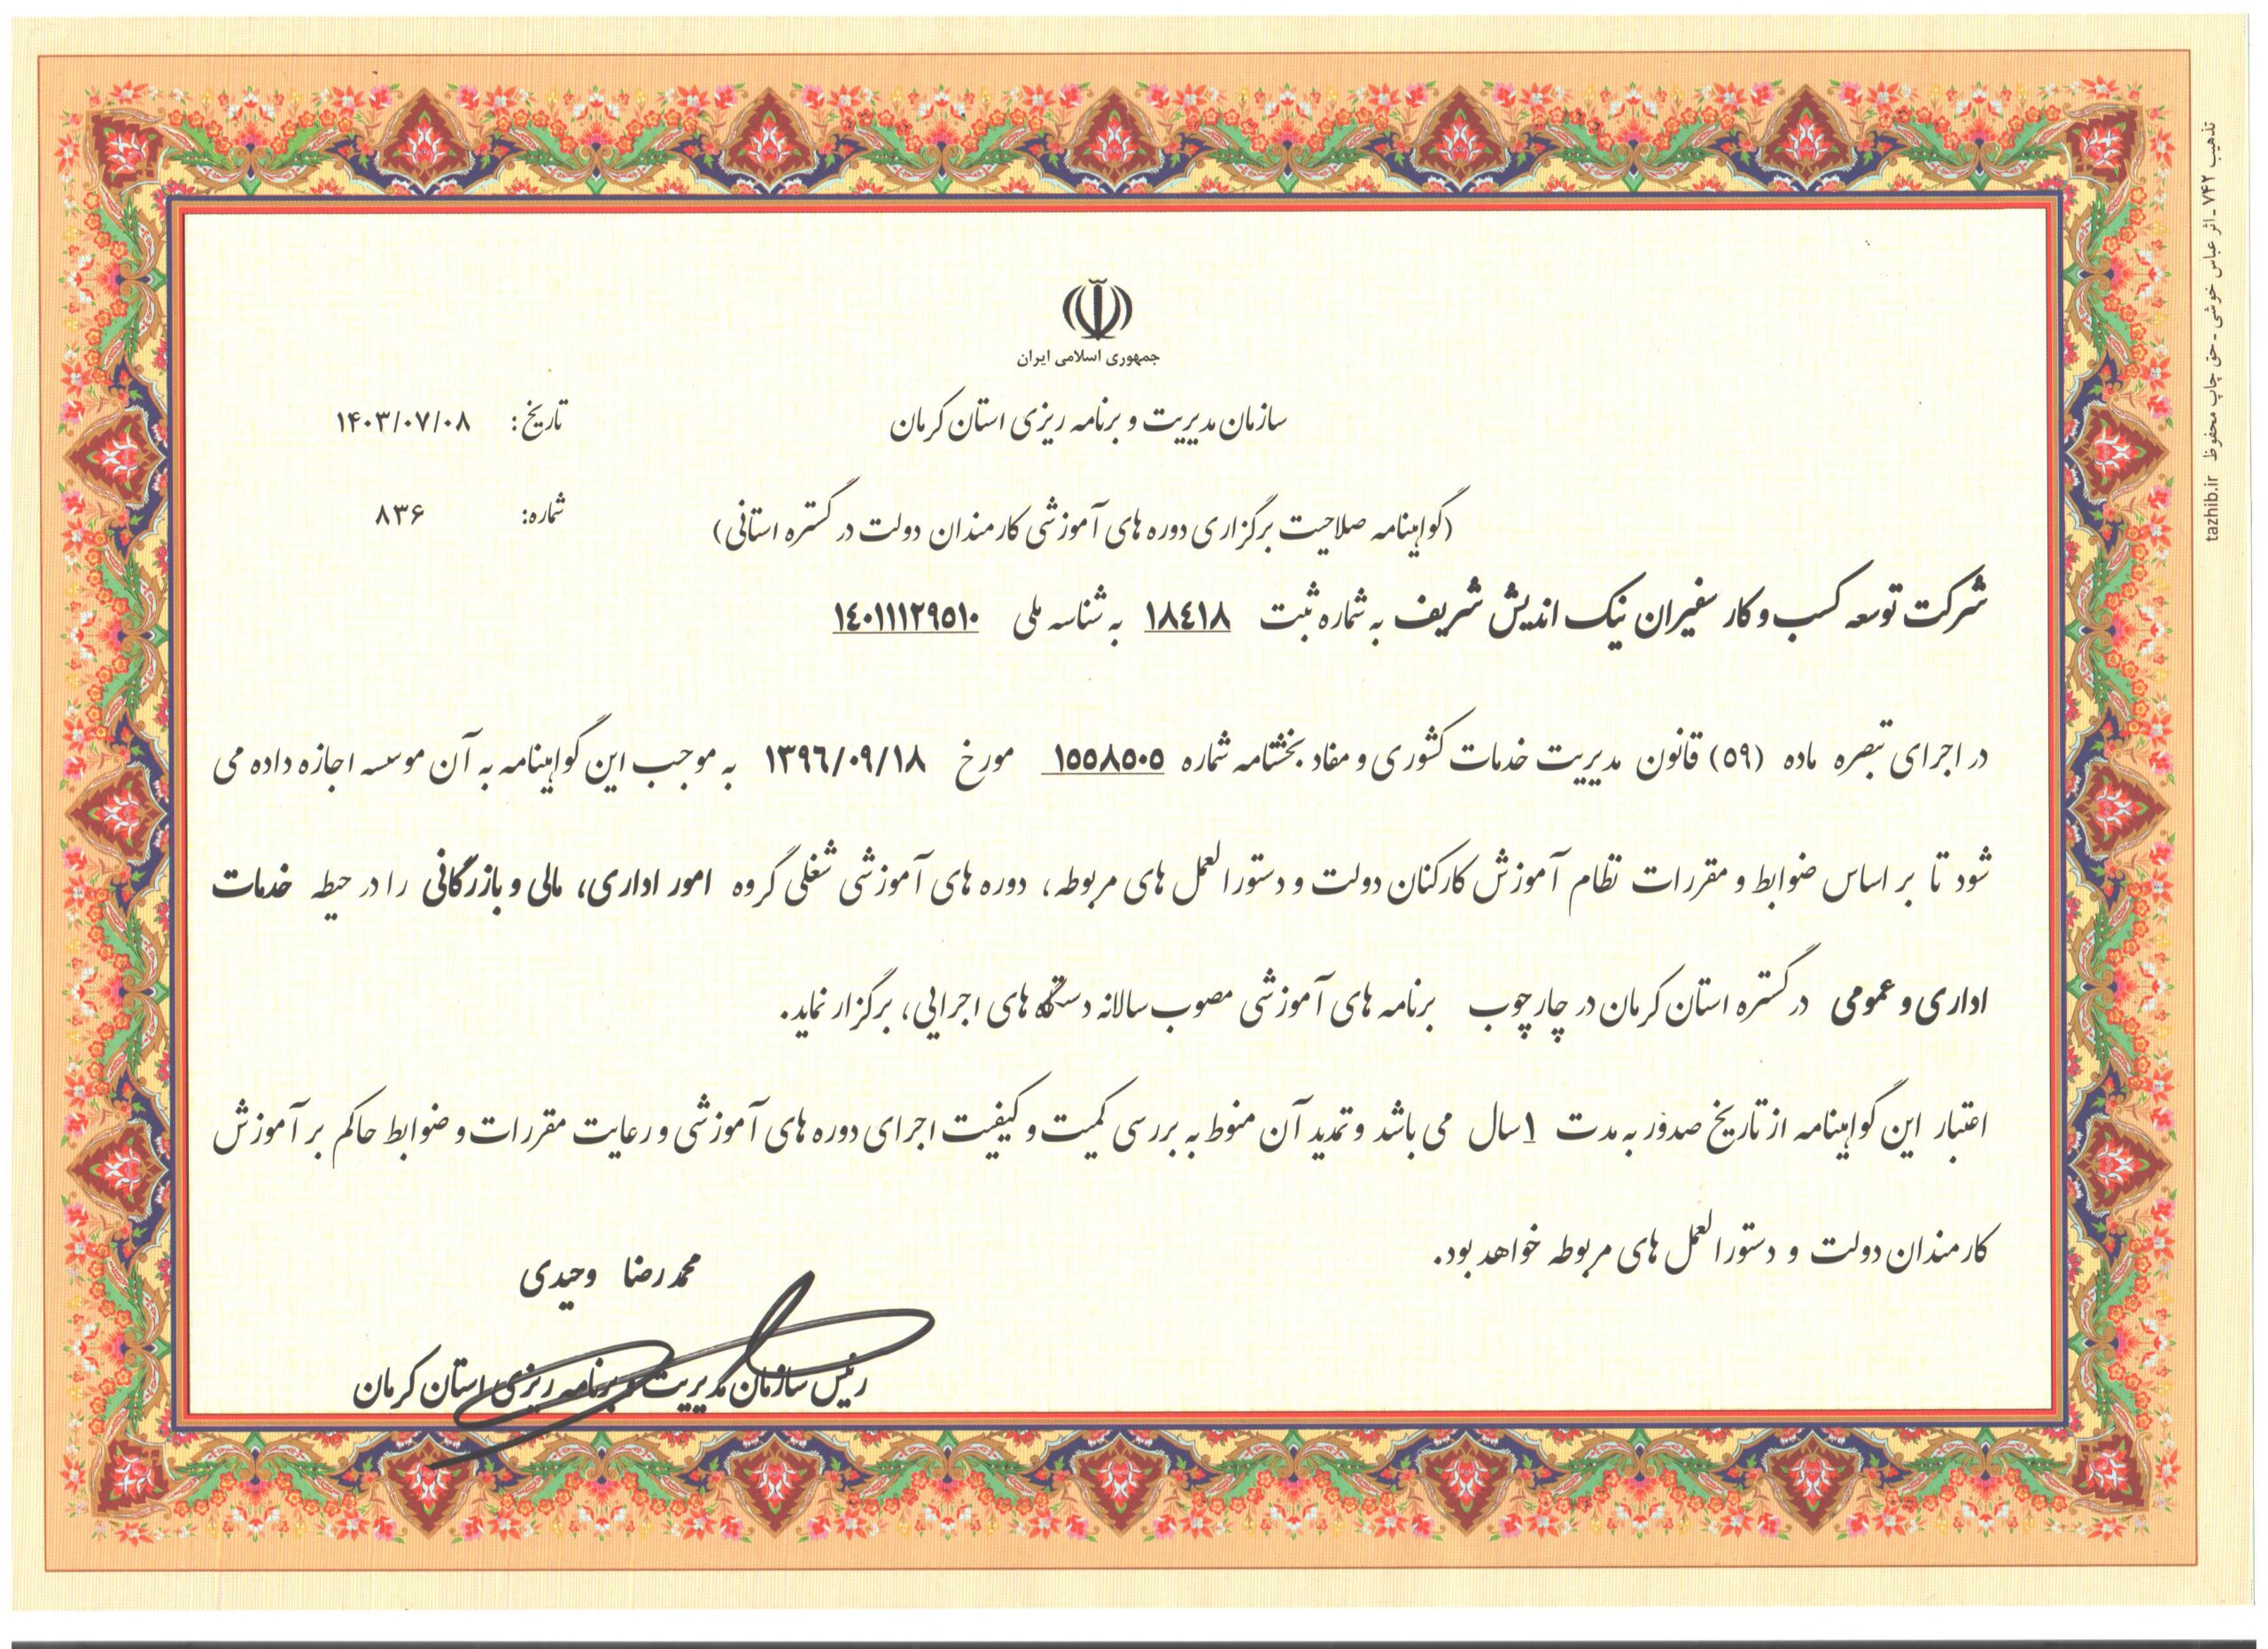 جمهوری اسلامی ایران
سازمان مدیریت و برنامه ریزی استان کرمان
تاریخ: ۱۴۰۳/۰۷/۰۸
(گواهینامه صلاحیت برگزاری دوره های آموزشی کارمندان دولت در گستره استانی)
شماره: ۸۳۶
شرکت توسعه کسب و کار سفیران نیک اندیش شریف به شماره ثبت ۱۸٤۱۸ به شناسه ملی ۱٤۰۱۱۱۲۹۵۱۰
در اجرای تبصره ماده (۵۹) قانون مدیریت خدمات کشوری و مفاد بخشنامه شماره ۱۵۵۸۵۰۵ مورخ ۱۳۹٦/۰۹/۱۸ به موجب این گواهینامه به آن موسسه اجازه داده می
شود تا بر اساس ضوابط و مقررات نظام آموزش کارکنان دولت و دستورالعمل های مربوطه، دوره های آموزشی شغلی گروه امور اداری، مالی و بازرگانی را در حیطه خدمات
اداری و عمومی در گستره استان کرمان در چارچوب برنامه های آموزشی مصوب سالانه دستگاه های اجرایی، برگزار نماید.
اعتبار این گواهینامه از تاریخ صدور به مدت ۱ سال می باشد و تمدید آن منوط به بررسی کمیت و کیفیت اجرای دوره های آموزشی و رعایت مقررات و ضوابط حاکم بر آموزش
کارمندان دولت و دستورالعمل های مربوطه خواهد بود.
محمدرضا وحیدی
رئیس سازمان مدیریت و برنامه ریزی استان کرمان
تذهیب ۷۴۲ - اثر عباس خوشی - حق چاپ محفوظ tazhib.ir